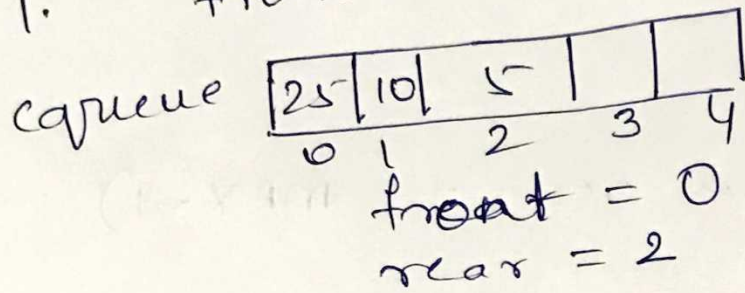 1.
cqueue 25 10 5
0 1 2 3 4
front = 0
rear = 2